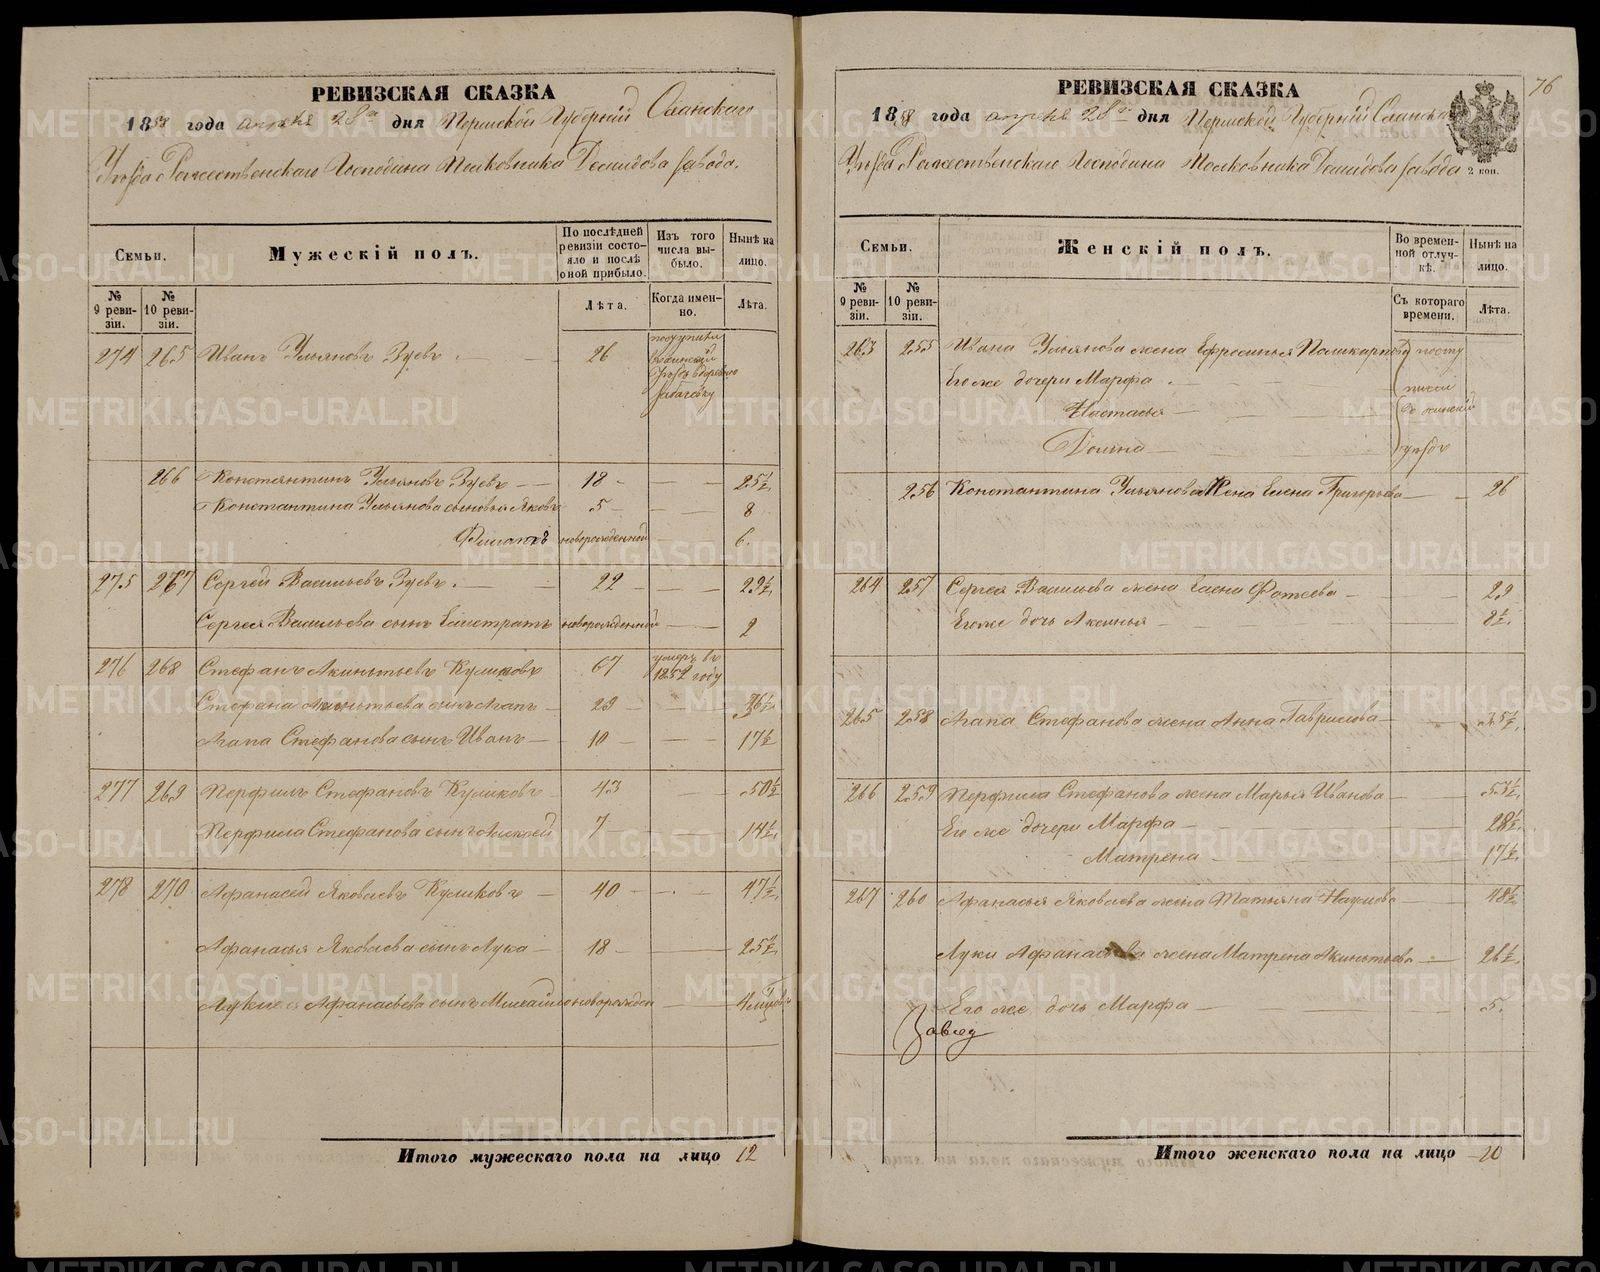 РЕВИЗСКАЯ СКАЗКА
1858 года апреля 28го дня Пермской Губернiи Оханскаго
Уезда Рожественскаго Господина Полковника Демидова завода.
Семьи.
Мужескiй полъ.
По послѣдней ревизiи состояло и послѣ оной прибыло.
Изъ того числа выбыло.
Нынѣ на лицо.
№ 9 ревизiи.
№ 10 ревизiи.
Лѣта.
Когда именно.
Лѣта.
274 265 Иванъ Ульяновъ Зуевъ 26
266 Константинъ Ульяновъ Зуевъ 18 25½
Константина Ульянова сыновья Яковъ 5 8
новорожденной 6.
275 267 Сергей Васильевъ Зуевъ 22 29½
Сергея Васильева сынъ Елистратъ новорожденной 2
276 268 Стефанъ Акинтьевъ Куликовъ 67 умеръ въ 1852 году
Стефана Акинтьева сынъ Агапъ 29 36½
Агапа Стефанова сынъ Иванъ 10 17½
277 269 Перфилъ Стефановъ Куликовъ 43 50½
Перфила Стефанова сынъ Алексей 7 14½
278 270 Афанасей Яковлевъ Куликовъ 40 47½
Афанасья Яковлева сынъ Лука 18 25½
Афанасьева сынъ Михайло новорожден
Итого мужескаго пола на лицо 12
76
РЕВИЗСКАЯ СКАЗКА
1858 года апреля 28го дня Пермской Губернiи Оханска
Уезда Рожественскаго Господина Полковника Демидова завода
2 коп.
Семьи.
Женскiй полъ.
Во временной отлучкѣ.
Нынѣ на лицо.
№ 9 ревизiи.
№ 10 ревизiи.
Съ котораго времени.
Лѣта.
263 255 Ивана Ульянова жена Ефросинья Поликарпова
Его же дочери Марфа
Настасья
Домна
256 Константина Ульянова Жена Елена Григорьева 26
264 257 Сергея Васильева жена Елена Фотеева 29
Его же дочь Аксинья 8½
265 258 Агапа Стефанова жена Анна Гаврилова 35½
266 259 Перфила Стефанова жена Марья Иванова 53½
Его же дочери Марфа 28½
Матрена 17½
267 260 Афанасья Яковлева жена Татьяна Наумова 48½
Луки Афанасьева жена Матрена Акинтьева 26½
Его же дочь Марфа 5.
Завод
Итого женскаго пола на лицо 10
METRIKI.GASO-URAL.RU